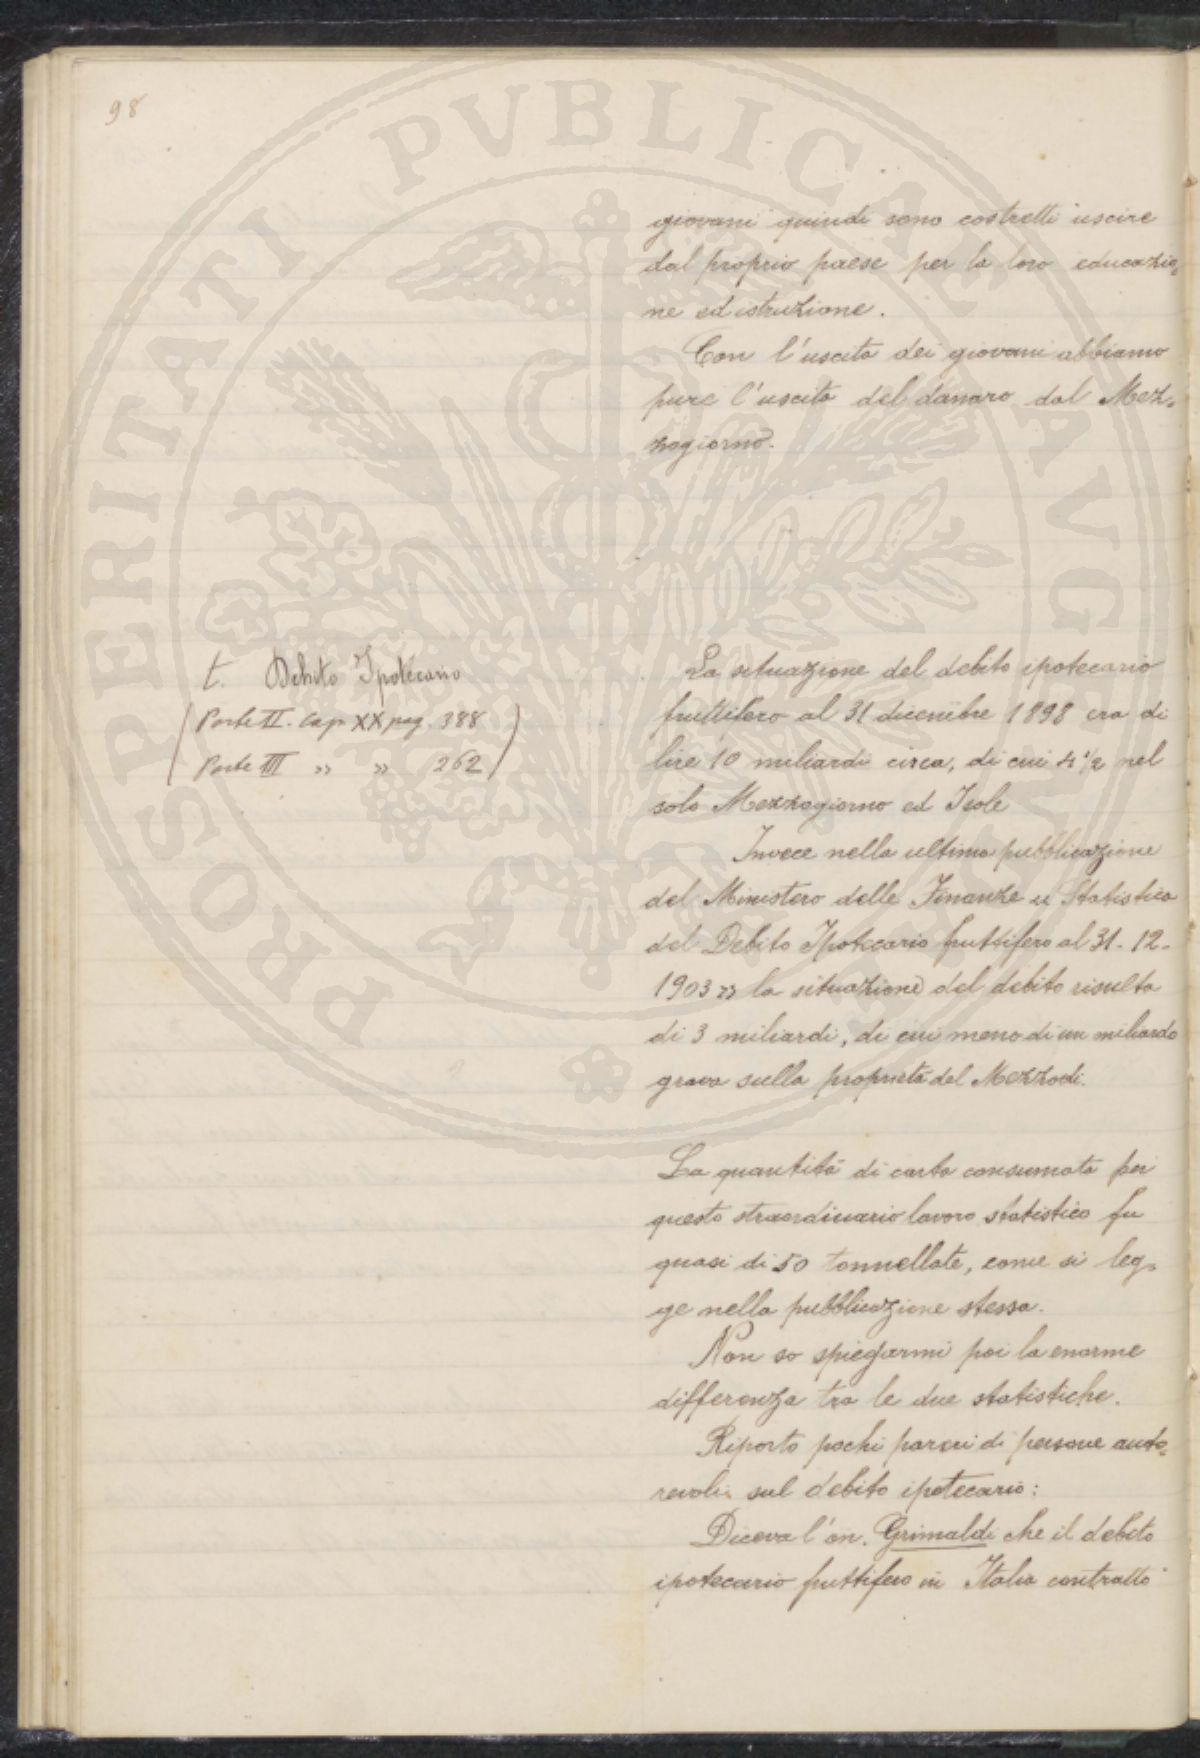 98
giovani quindi sono costretti uscire
dal proprio paese per la loro educazio=
ne ed istruzione.
Con l'uscita dei giovani abbiamo
pure l'uscita del danaro dal Mez=
zogiorno.
t. Debito Ipotecario
(Parte II. Cap XX pag. 388)
Parte III » » 262)
La situazione del debito ipotecario
fruttifero al 31 dicembre 1898 era di
lire 10 miliardi circa, di cui 4 1/2 nel
solo Mezzogiorno ed Isole
Invece nella ultima pubblicazione
del Ministero delle Finanze « Statistica
del Debito Ipotecario fruttifero al 31-12-
1903 » la situazione del debito risulta
di 3 miliardi, di cui meno di un miliardo
grava sulla proprietà del Mezzodì.
La quantità di carta consumata per
questo straordinario lavoro statistico fu
quasi di 50 tonnellate, come si leg=
ge nella pubblicazione stessa.
Non so spiegarmi poi la enorme
differenza tra le due statistiche.
Riporto pochi pareri di persone auto=
revoli sul debito ipotecario:
Diceva l'on. Grimaldi che il debito
ipotecario fruttifero in Italia contratto
PROSPERITATI PVBLICAE AVGENDAE